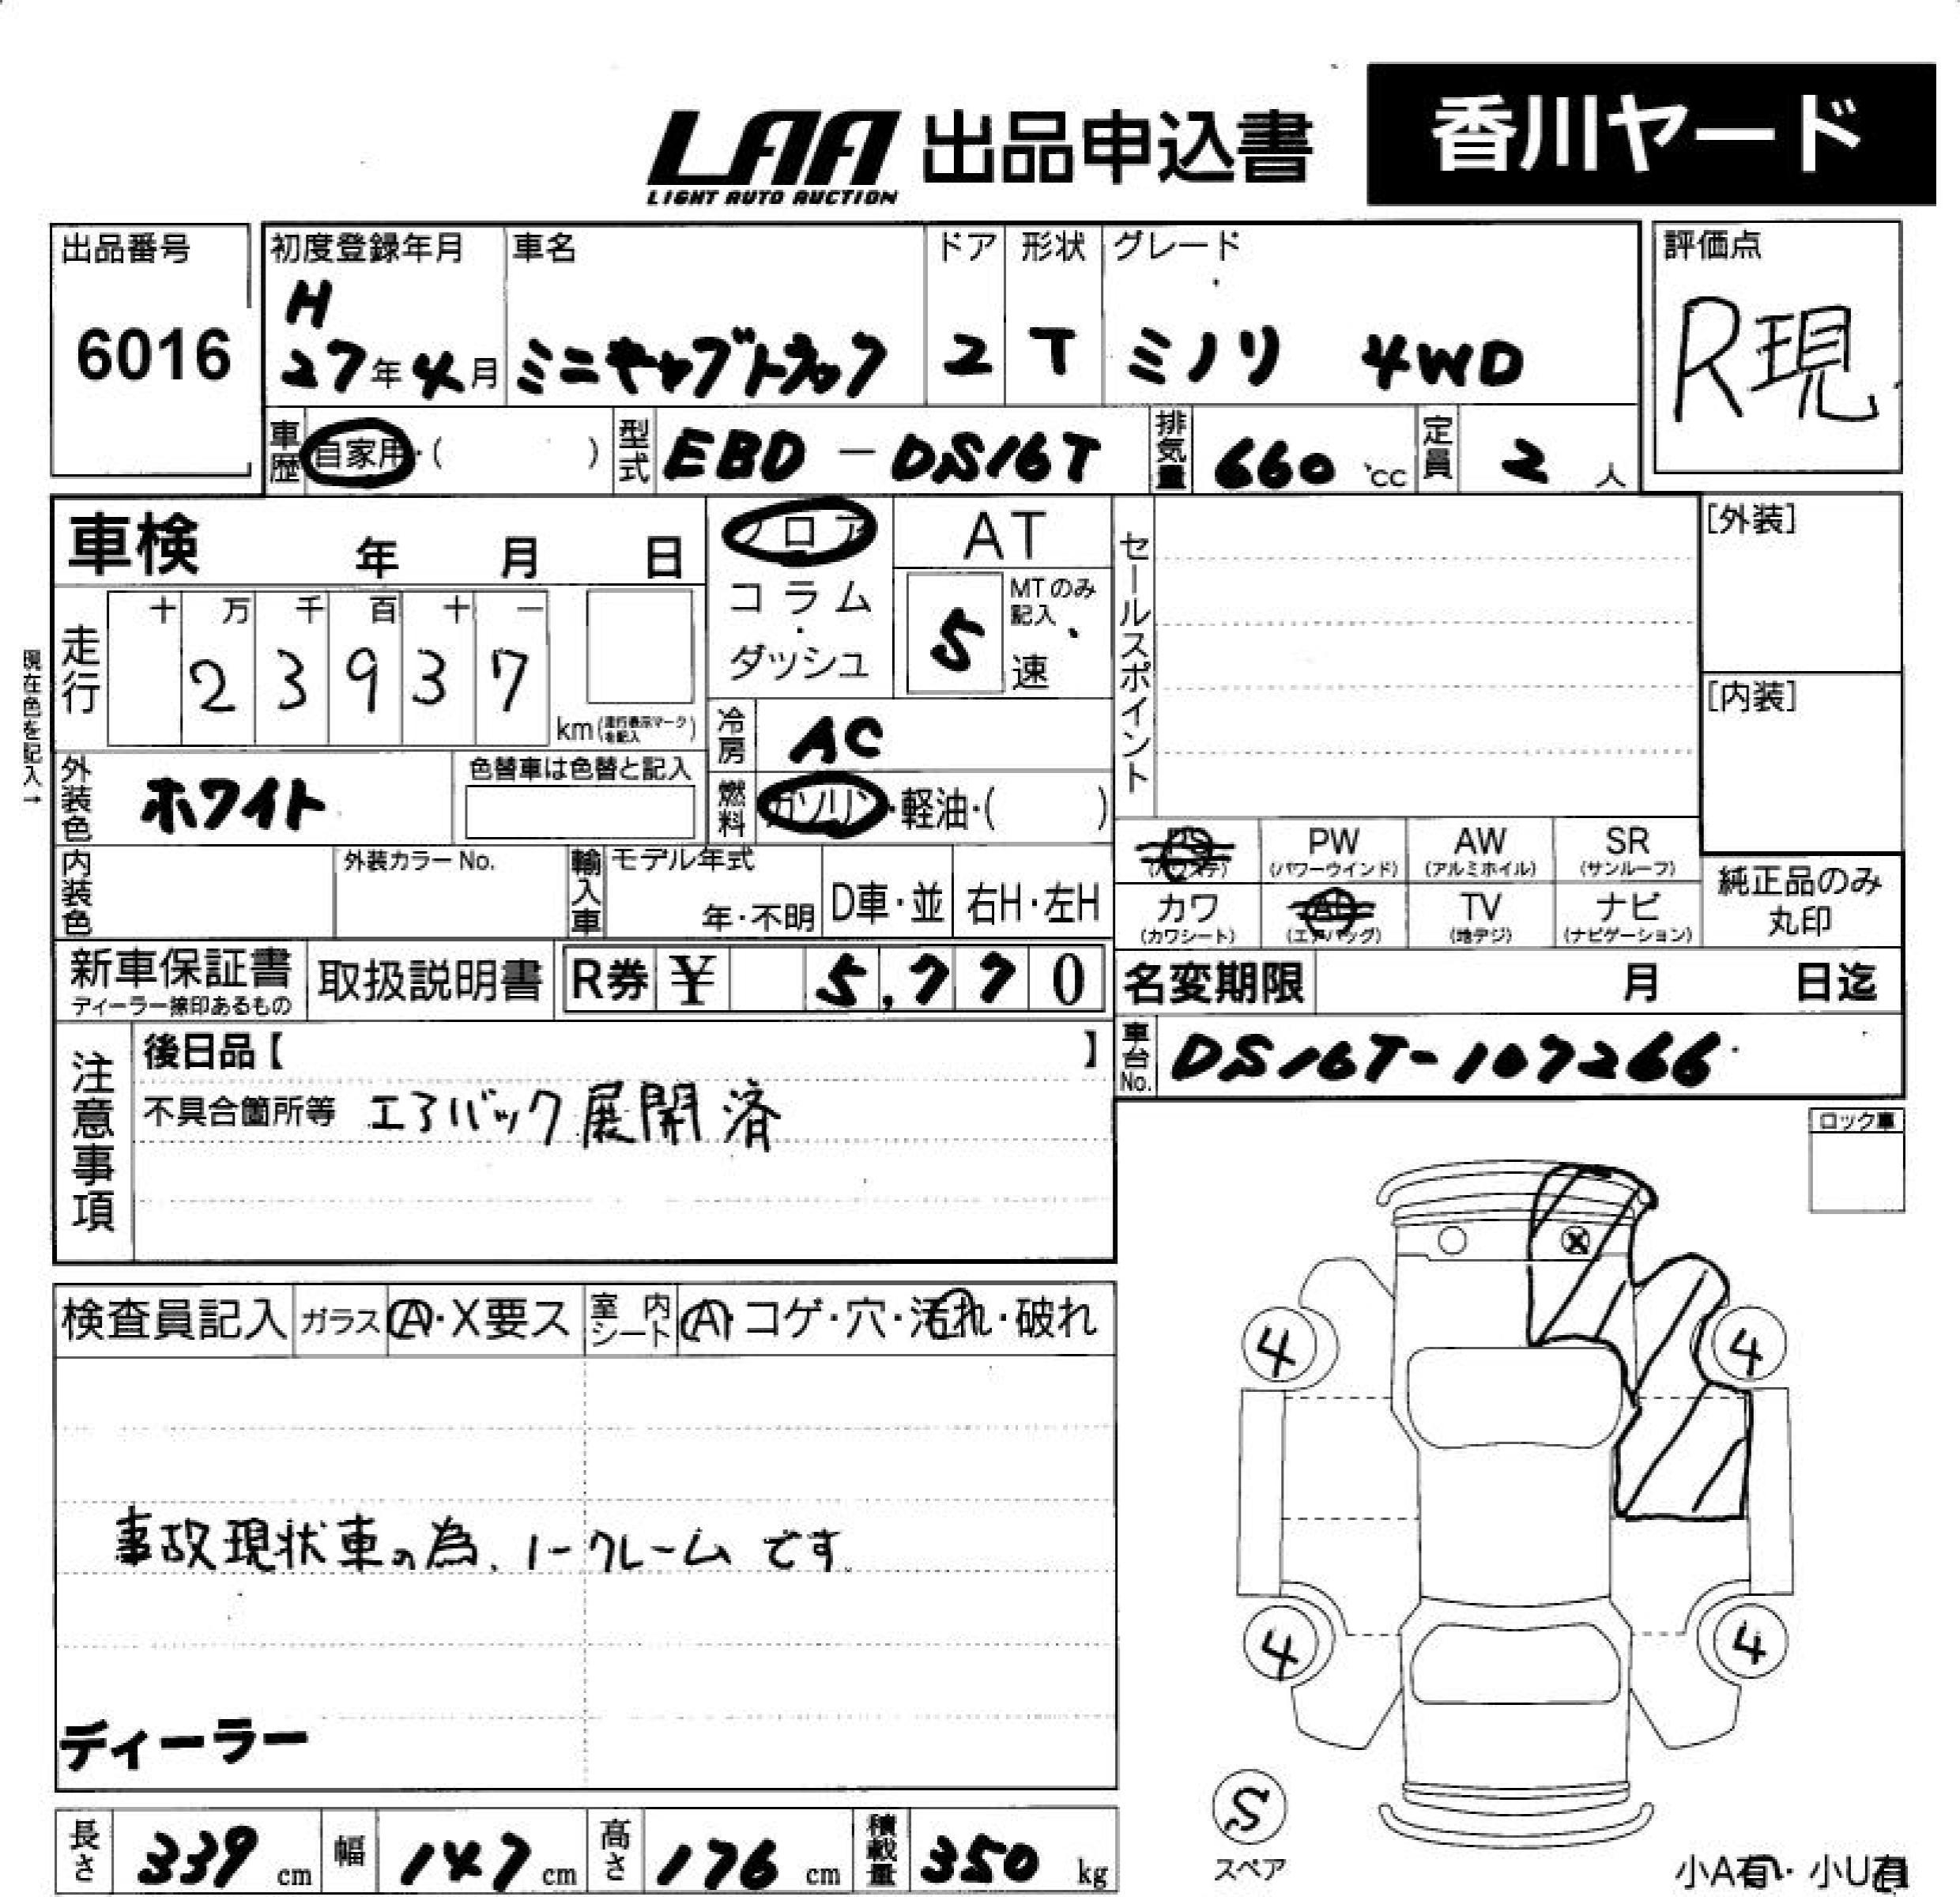 LAA 出品申込書 香川ヤード
LIGHT AUTO AUCTION
出品番号 初度登録年月 車名 ドア 形状 グレード 評価点
6016 H 27年4月 ミニキャブトラック 2 T ミノリ 4WD R現
車歴 自家用・( ) 型式 EBD-DS16T 排気量 660 cc 定員 2 人
車検 年 月 日 フロア・コラム・ダッシュ AT セールスポイント [外装]
5 MTのみ記入 速
現在色を記入→
走行 十 万 千 百 十 一
2 3 9 3 7 km (走行表示マークを記入) [内装]
冷房 AC
外装色 ホワイト 色替車は色替と記入 燃料 ガソリン・軽油・( )
PS PW AW SR
(パワステ) (パワーウインド) (アルミホイル) (サンルーフ)
内装色 外装カラーNo. 輸入車 モデル年式 年・不明 D車・並 右H・左H
カワ AB TV ナビ 純正品のみ
(カワシート) (エアバッグ) (地デジ) (ナビゲーション) 丸印
新車保証書 取扱説明書 R券 ¥ 5,770 名変期限 月 日迄
ディーラー捺印あるもの
注意事項 後日品【 】 車台No. DS16T-107266
不具合箇所等 エアバック展開済
ロック車
検査員記入 ガラス A・X要ス 室内シート A・コゲ・穴・汚れ・破れ
4 4
事故現状車の為、ノークレームです。
4 4
ディーラー
S
スペア
小A有・小U有
長さ 339 cm 幅 147 cm 高さ 176 cm 積載量 350 kg